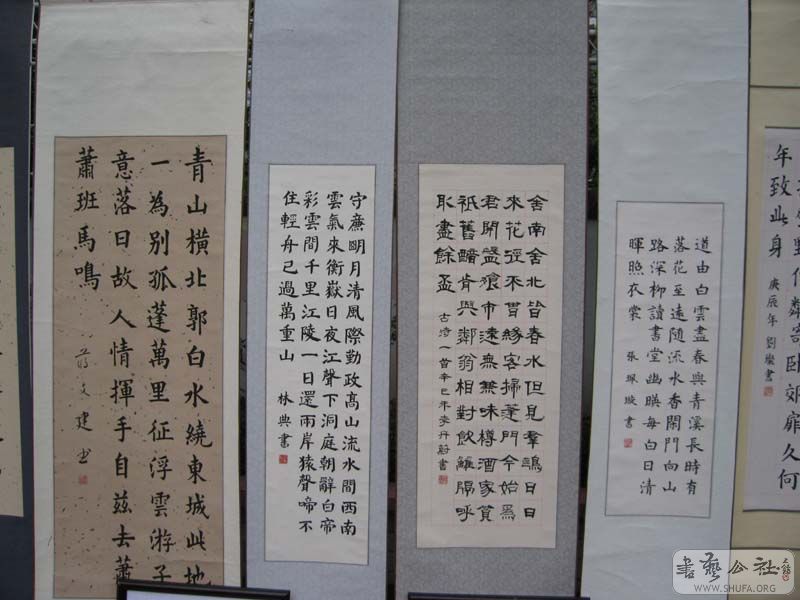 青山橫北郭白水繞東城此地
一為別孤蓬萬里征浮雲游子
意落日故人情揮手自茲去蕭
蕭班馬鳴
蔣文建書
守廉明月清風際勤政高山流水間西南
雲氣來衡嶽日夜江聲下洞庭朝辭白帝
彩雲間千里江陵一日還兩岸猿聲啼不
住輕舟已過萬重山 林典書
舍南舍北皆春水但見羣鷗日日
來花徑不曾緣客掃蓬門今始為
君開盤飧市遠無兼味樽酒家貧
祇舊醅肯與鄰翁相對飲籬隔呼
取盡餘盃 古詩一首辛巳年李丹蔚書
道由白雲盡春與青溪長時有
落花至遠隨流水香閑門向山
路深柳讀書堂幽暎每白日清
暉照衣裳 張珮璇書
作鄰寄臥郊扉久何
年致此身 庚辰年 劉燦書
書藝公社
WWW.SHUFA.ORG